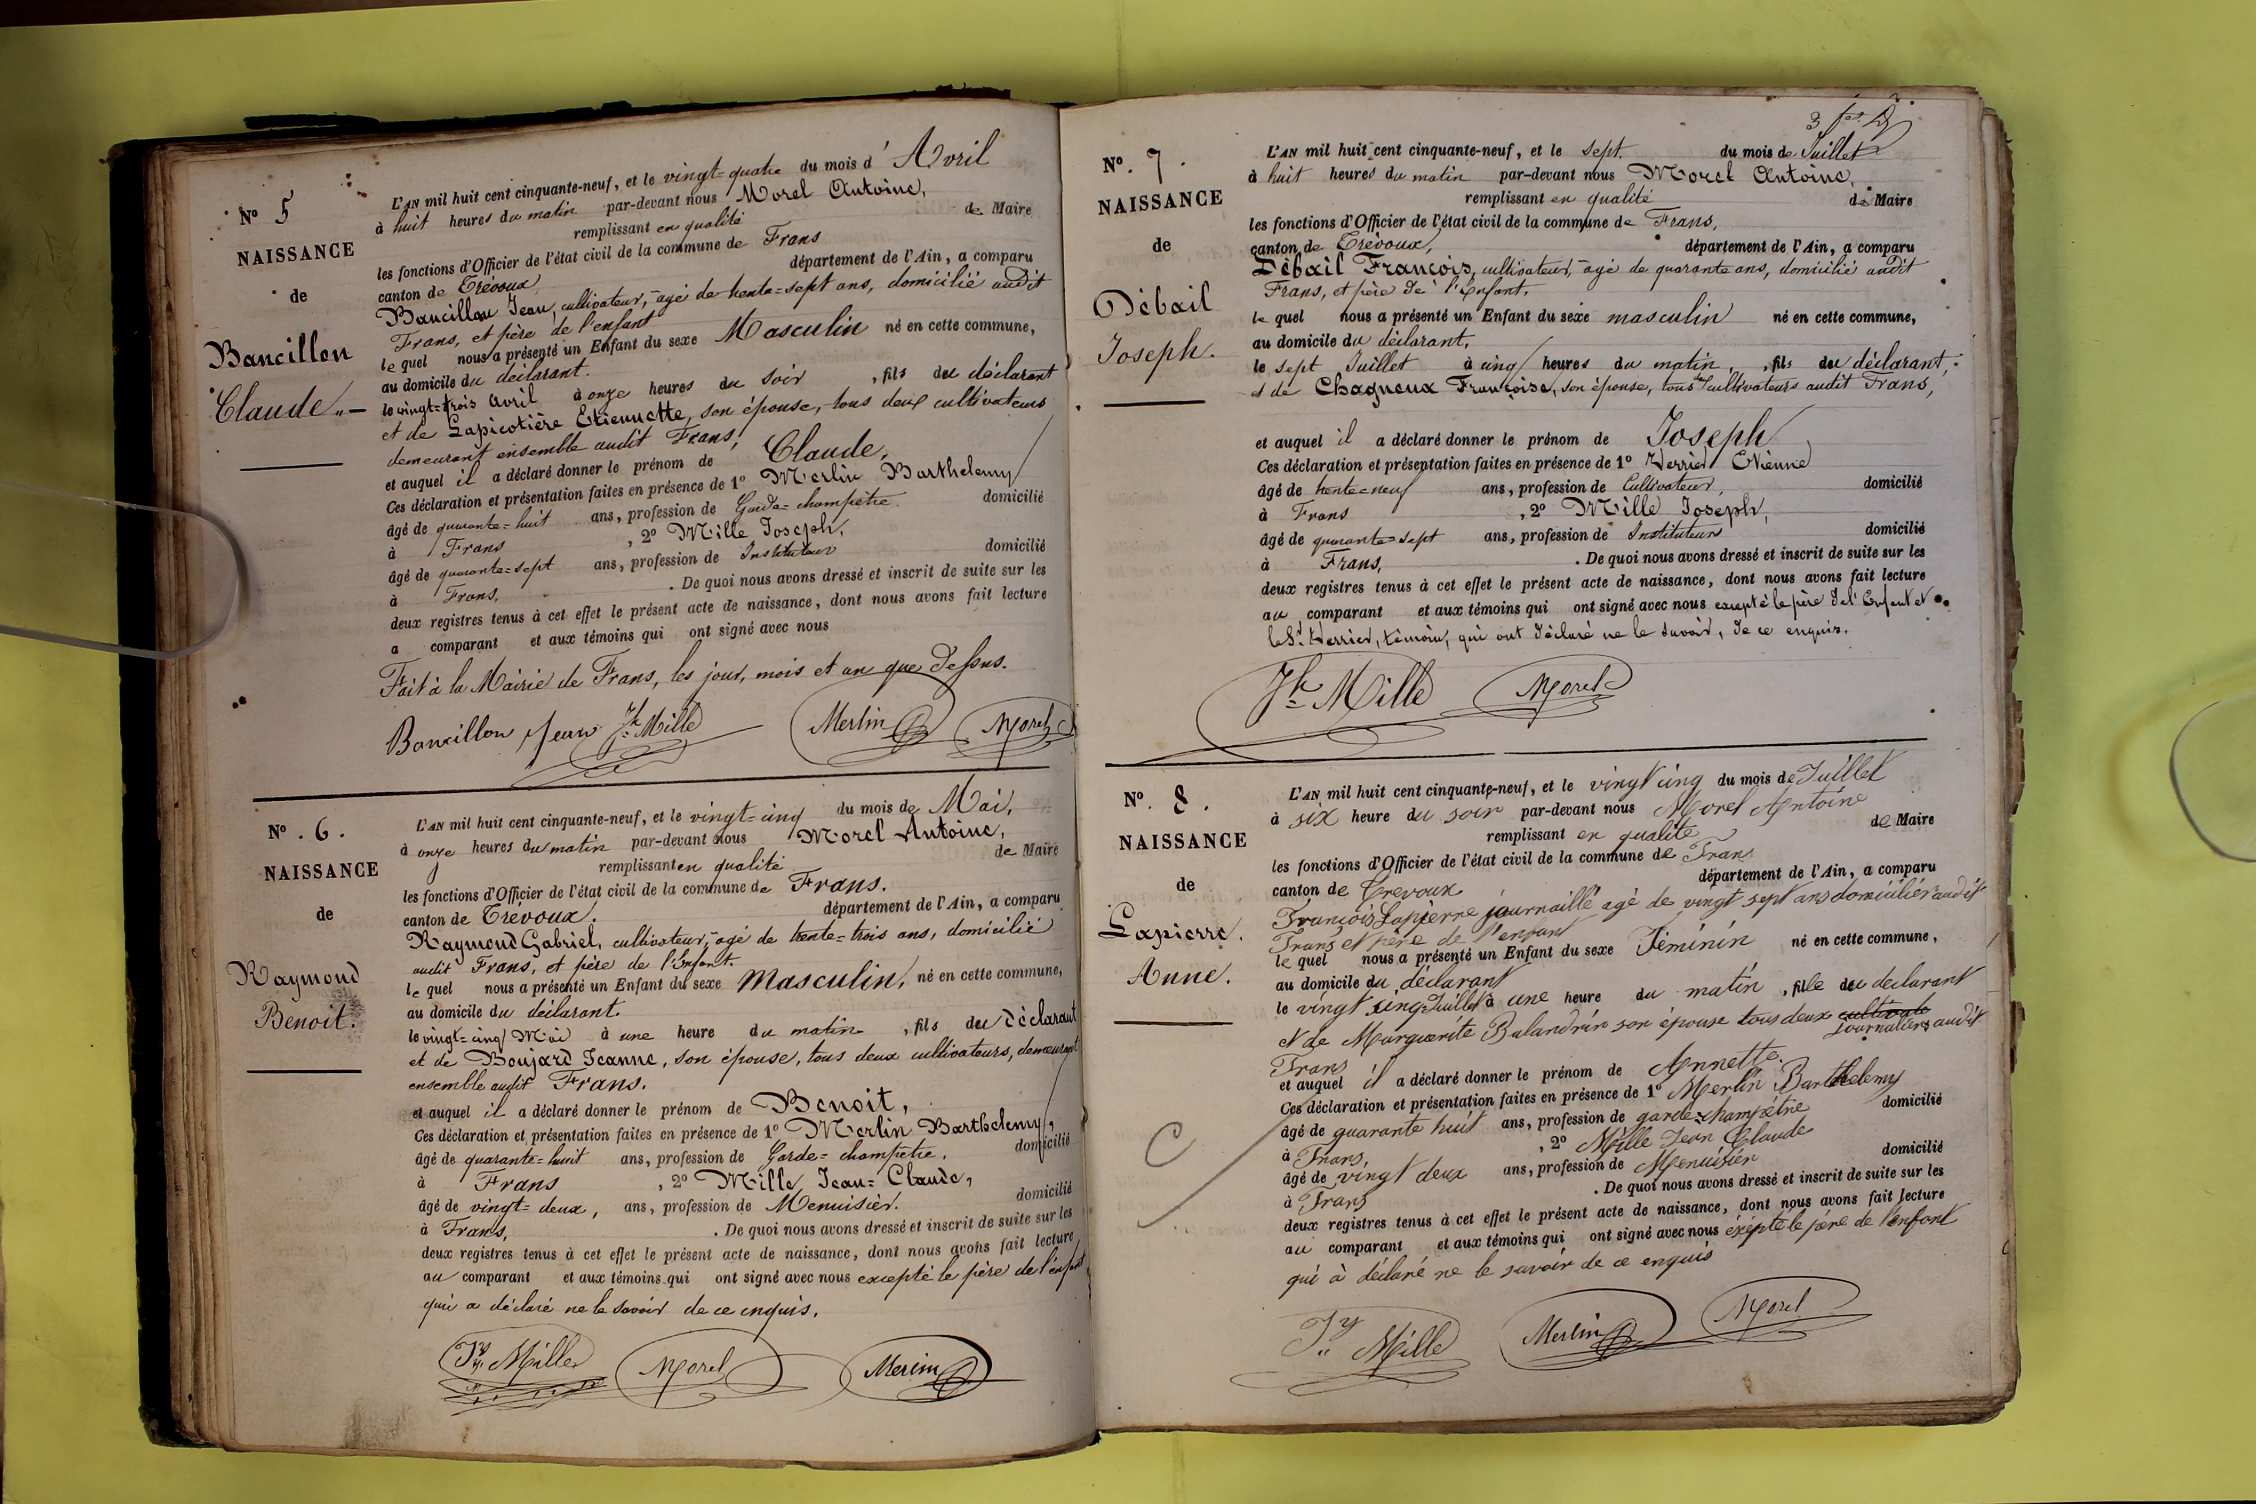 Nº 5
NAISSANCE
de
Bancillon
Claude
L'AN mil huit cent cinquante-neuf, et le vingt=quatre du mois d'Avril
à huit heures du matin par-devant nous Morel Antoine,
remplissant en qualité de Maire
les fonctions d'Officier de l'état civil de la commune de Frans
canton de Trévoux, département de l'Ain, a comparu
Bancillon Jean, cultivateur, âgé de trente=sept ans, domicilié audit
Frans, et père de l'enfant
le quel nous a présenté un Enfant du sexe Masculin né en cette commune,
au domicile du déclarant.
le vingt=trois avril à onze heures du soir, fils du déclarant
et de Lapicotière Etiennette, son épouse, tous deux cultivateurs
demeurant ensemble audit Frans,
et auquel il a déclaré donner le prénom de Claude,
Ces déclaration et présentation faites en présence de 1º Merlin Barthelemy
âgé de quarante=huit ans, profession de Garde=champêtre. domicilié
à Frans, 2º Mille Joseph,
âgé de quarante=sept ans, profession de Instituteur domicilié
à Frans, . De quoi nous avons dressé et inscrit de suite sur les
deux registres tenus à cet effet le présent acte de naissance, dont nous avons fait lecture
a comparant et aux témoins qui ont signé avec nous
Fait à la Mairie de Frans, les jour, mois et an que dessus.
Bancillon Jean Jh Mille Merlin Morel
Nº. 6.
NAISSANCE
de
Raymond
Benoit.
L'AN mil huit cent cinquante-neuf, et le vingt=cinq du mois de Mai,
à onze heures du matin par-devant nous Morel Antoine,
remplissant en qualité de Maire
les fonctions d'Officier de l'état civil de la commune de Frans.
canton de Trevoux. département de l'Ain, a comparu
Raymond Gabriel, cultivateur, âgé de trente=trois ans, domicilié
audit Frans, et père de l'Enfant.
le quel nous a présenté un Enfant du sexe Masculin, né en cette commune,
au domicile du déclarant.
le vingt=cinq Mai à une heure du matin, fils du déclarant
et de Boujard Jeanne, son épouse, tous deux cultivateurs, demeurant
ensemble audit Frans.
et auquel il a déclaré donner le prénom de Benoit,
Ces déclaration et présentation faites en présence de 1º Merlin Barthelemy,
âgé de quarante=huit ans, profession de Garde=champêtre. domicilié
à Frans, 2º Mille Jean=Claude,
âgé de vingt=deux, ans, profession de Menuisier. domicilié
à Frans, . De quoi nous avons dressé et inscrit de suite sur les
deux registres tenus à cet effet le présent acte de naissance, dont nous avons fait lecture
au comparant et aux témoins qui ont signé avec nous excepté le père de l'enfant
qui a déclaré ne le savoir de ce enquis.
Mille Morel Merlin
Nº. 7.
NAISSANCE
de
Débail
Joseph.
L'AN mil huit cent cinquante-neuf, et le sept. du mois de Juillet
à huit heures du matin par-devant nous Morel Antoine,
remplissant en qualité de Maire
les fonctions d'Officier de l'état civil de la commune de Frans,
canton de Trévoux, département de l'Ain, a comparu
Débail François, cultivateur, âgé de quarante ans, domicilié audit
Frans, et père de l'Enfant.
le quel nous a présenté un Enfant du sexe masculin né en cette commune,
au domicile du déclarant,
le sept Juillet à cinq heures du matin, fils du déclarant,
et de Chagneux Françoise, son épouse, tous 2 cultivateurs audit Frans,
et auquel il a déclaré donner le prénom de Joseph,
Ces déclaration et présentation faites en présence de 1º Verrier Etienne
âgé de trente=neuf ans, profession de Cultivateur, domicilié
à Frans, 2º Mille Joseph,
âgé de quarante=sept ans, profession de Instituteur domicilié
à Frans, . De quoi nous avons dressé et inscrit de suite sur les
deux registres tenus à cet effet le présent acte de naissance, dont nous avons fait lecture
au comparant et aux témoins qui ont signé avec nous excepté le père de l'Enfant et
le Sr Verrier, témoin, qui ont déclaré ne le savoir, de ce enquis.
Jh Mille Morel
Nº. 8.
NAISSANCE
de
Lapierre.
Anne.
L'AN mil huit cent cinquante-neuf, et le vingt cinq du mois de Juillet
à six heure du soir par-devant nous Morel Antoine
remplissant en qualité de Maire
les fonctions d'Officier de l'état civil de la commune de Frans
canton de Trevoux département de l'Ain, a comparu
François Lapierre journaillé agé de vingt sept ans domicilier audit
Frans et père de l'enfant
le quel nous a présenté un Enfant du sexe Féminin né en cette commune,
au domicile du déclarant
le vingt cinq Juillet à une heure du matin, fille du declarant
et de Marguerite Balandrin son épouse tous deux cultivate journaliers audit
Frans
et auquel il a déclaré donner le prénom de Annette.
Ces déclaration et présentation faites en présence de 1º Merlin Barthelemy
âgé de quarante huit ans, profession de garde=champétre domicilié
à Frans, 2º Mille Jean Claude
âgé de vingt deux ans, profession de Menuisier domicilié
à Frans . De quoi nous avons dressé et inscrit de suite sur les
deux registres tenus à cet effet le présent acte de naissance, dont nous avons fait lecture
au comparant et aux témoins qui ont signé avec nous éxépte le pére de l'enfant
qui à déclaré ne le savoir de ce enquis
Mille Merlin Morel